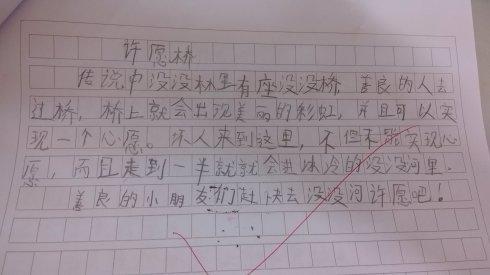 许愿桥
传说中没没林里有座没没桥，善良的人去
过桥，桥上就会出现美丽的彩虹，并且可以实
现一个心愿。坏人来到这里，不但不能实现心
愿，而且走到一半就就会进冰冷的没没河里。
善良的小朋友们赶快去没没河许愿吧！